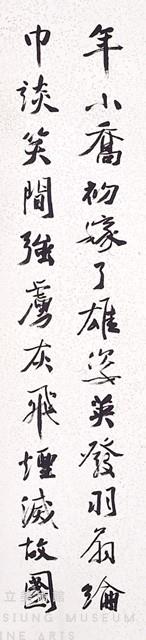 年小喬初嫁了雄姿英發羽扇綸
巾談笑間強虜灰飛煙滅故國
立美術館
SIUNG MUSEUM
INE ARTS